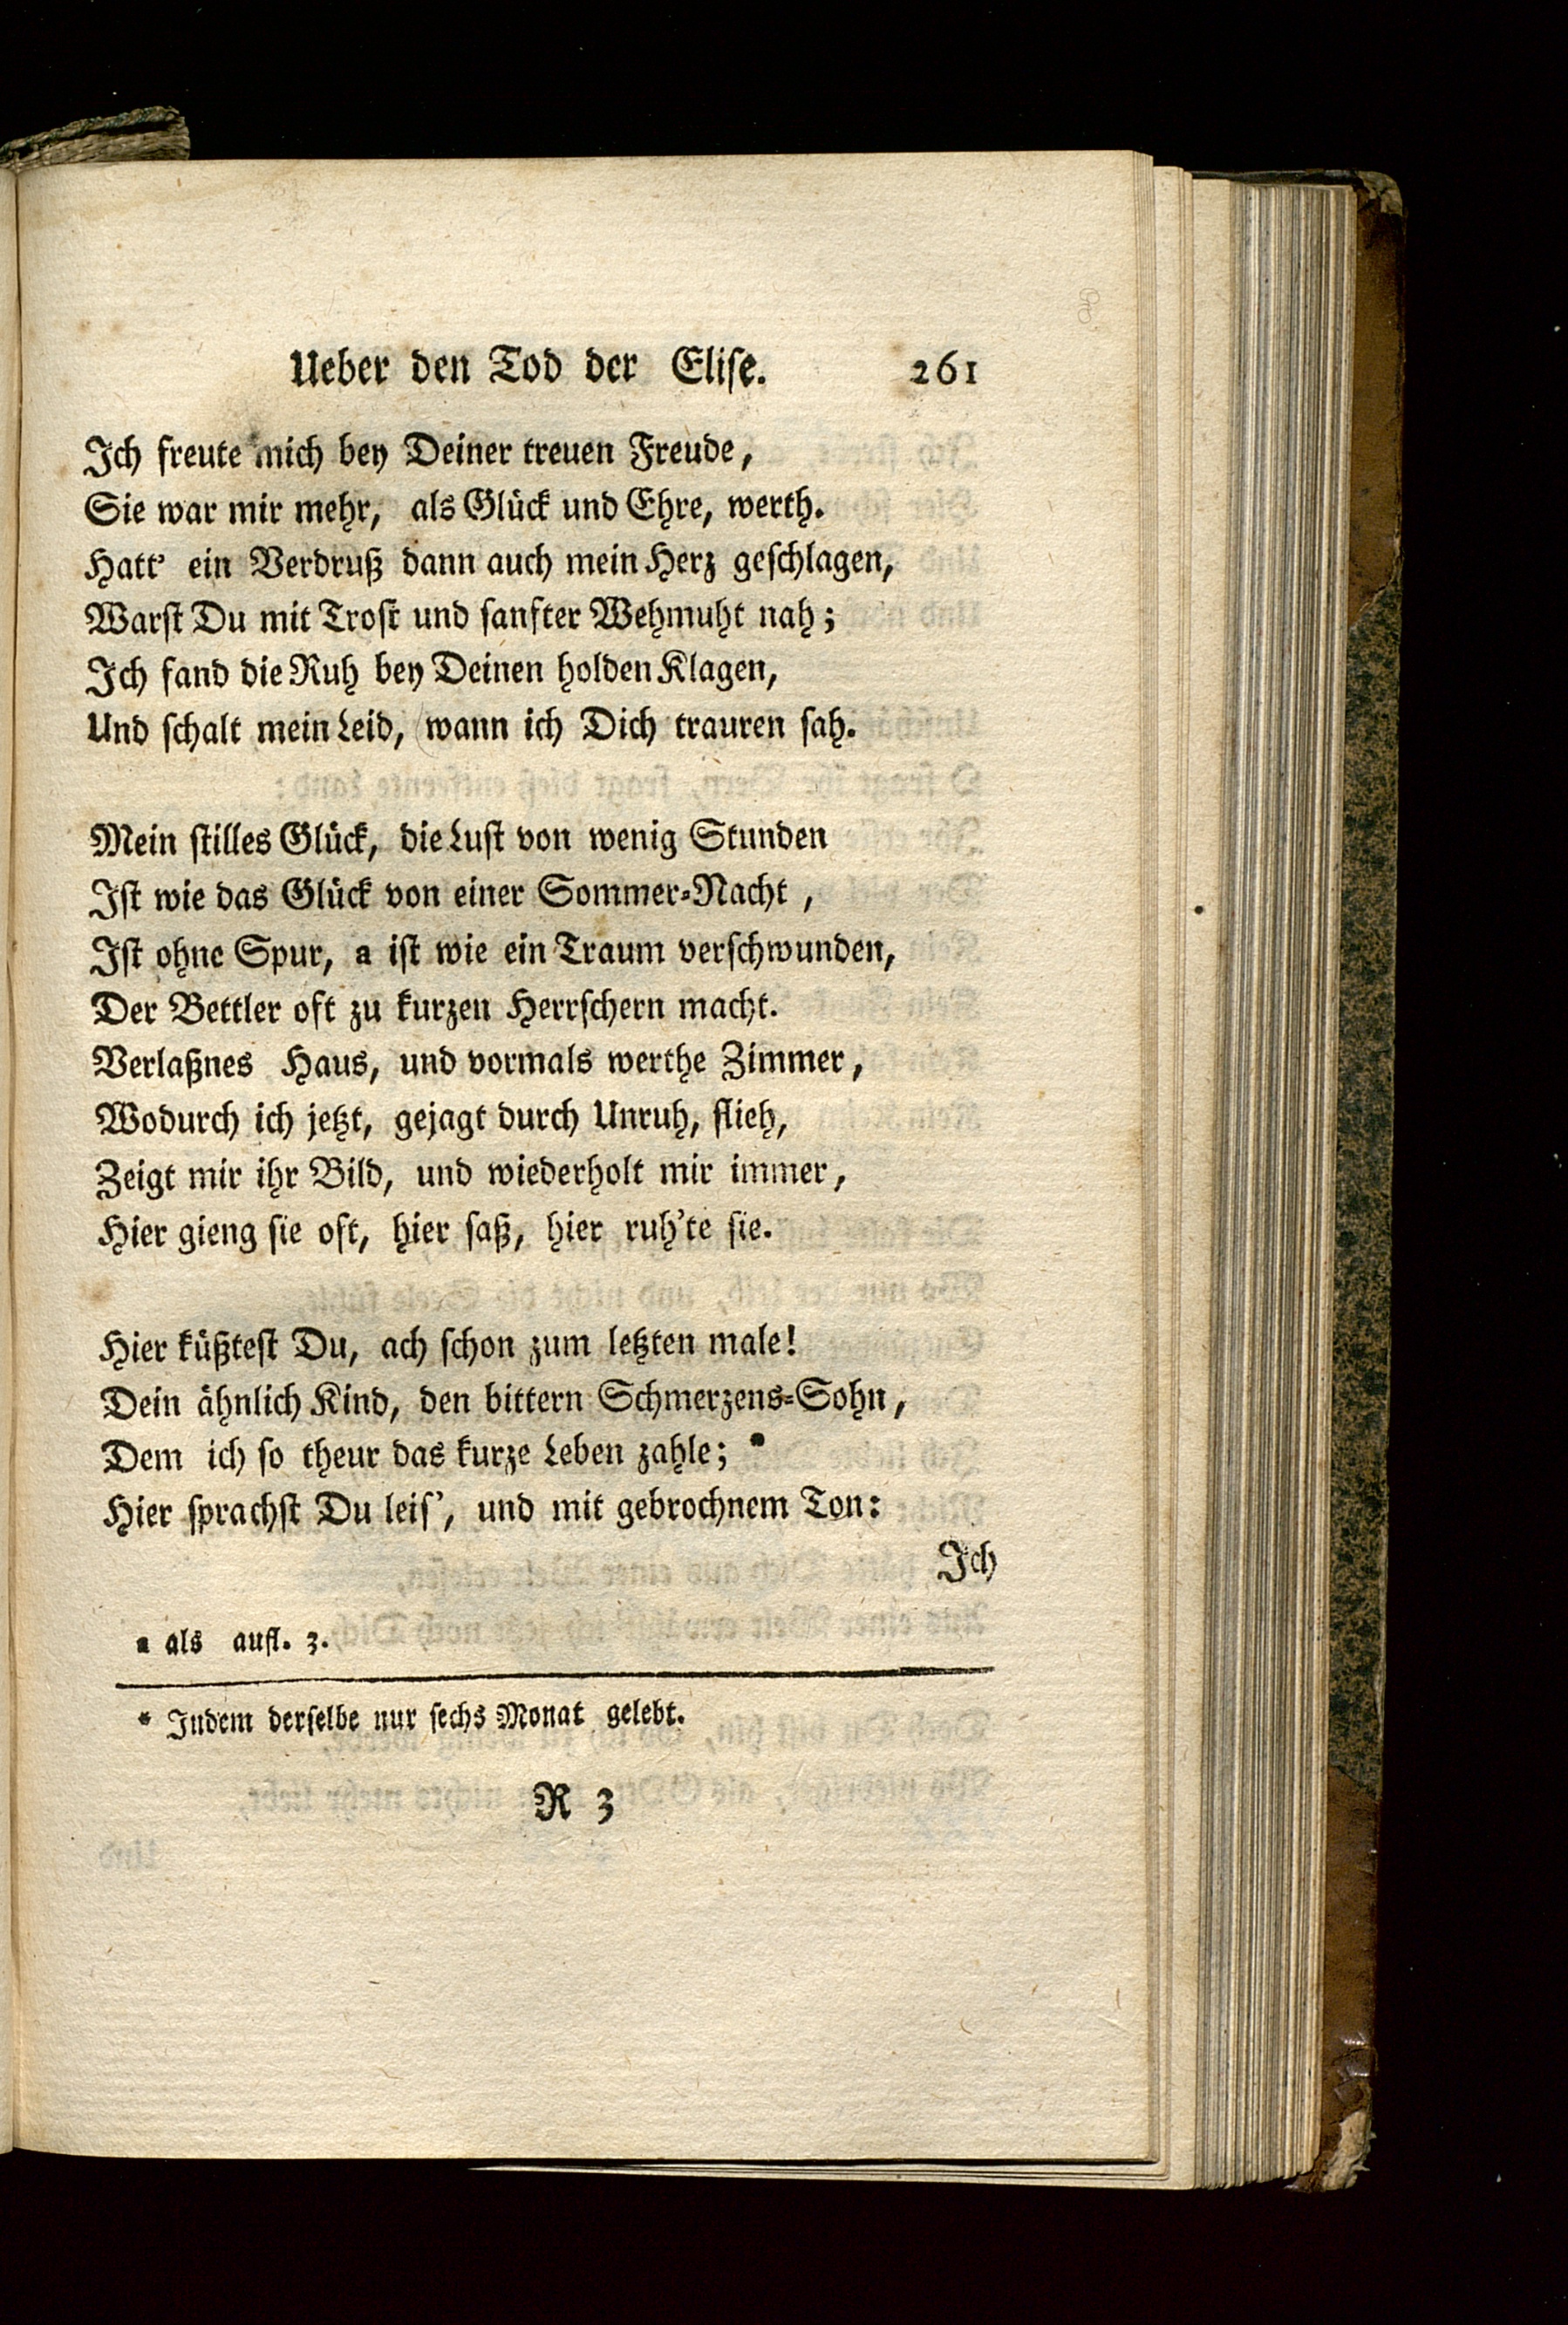 Ueber den Tod der Elise. 261
Ich freute mich bey Deiner treuen Freude,
Sie war mir mehr, als Glück und Ehre, werth.
Hatt' ein Verdruß dann auch mein Herz geschlagen,
Warst Du mit Trost und sanfter Wehmuht nah;
Ich fand die Ruh bey Deinen holden Klagen,
Und schalt mein Leid, wann ich Dich trauren sah.
Mein stilles Glück, die Lust von wenig Stunden
Ist wie das Glück von einer Sommer-Nacht,
Ist ohne Spur, a ist wie ein Traum verschwunden,
Der Bettler oft zu kurzen Herrschern macht.
Verlaßnes Haus, und vormals werthe Zimmer,
Wodurch ich jetzt, gejagt durch Unruh, flieh,
Zeigt mir ihr Bild, und wiederholt mir immer,
Hier gieng sie oft, hier saß, hier ruh'te sie.
Hier küßtest Du, ach schon zum letzten male!
Dein ähnlich Kind, den bittern Schmerzens-Sohn,
Dem ich so theur das kurze Leben zahle; *
Hier sprachst Du leis', und mit gebrochnem Ton:
Ich
a als aufl. 3.
* Indem derselbe nur sechs Monat gelebt.
R 3